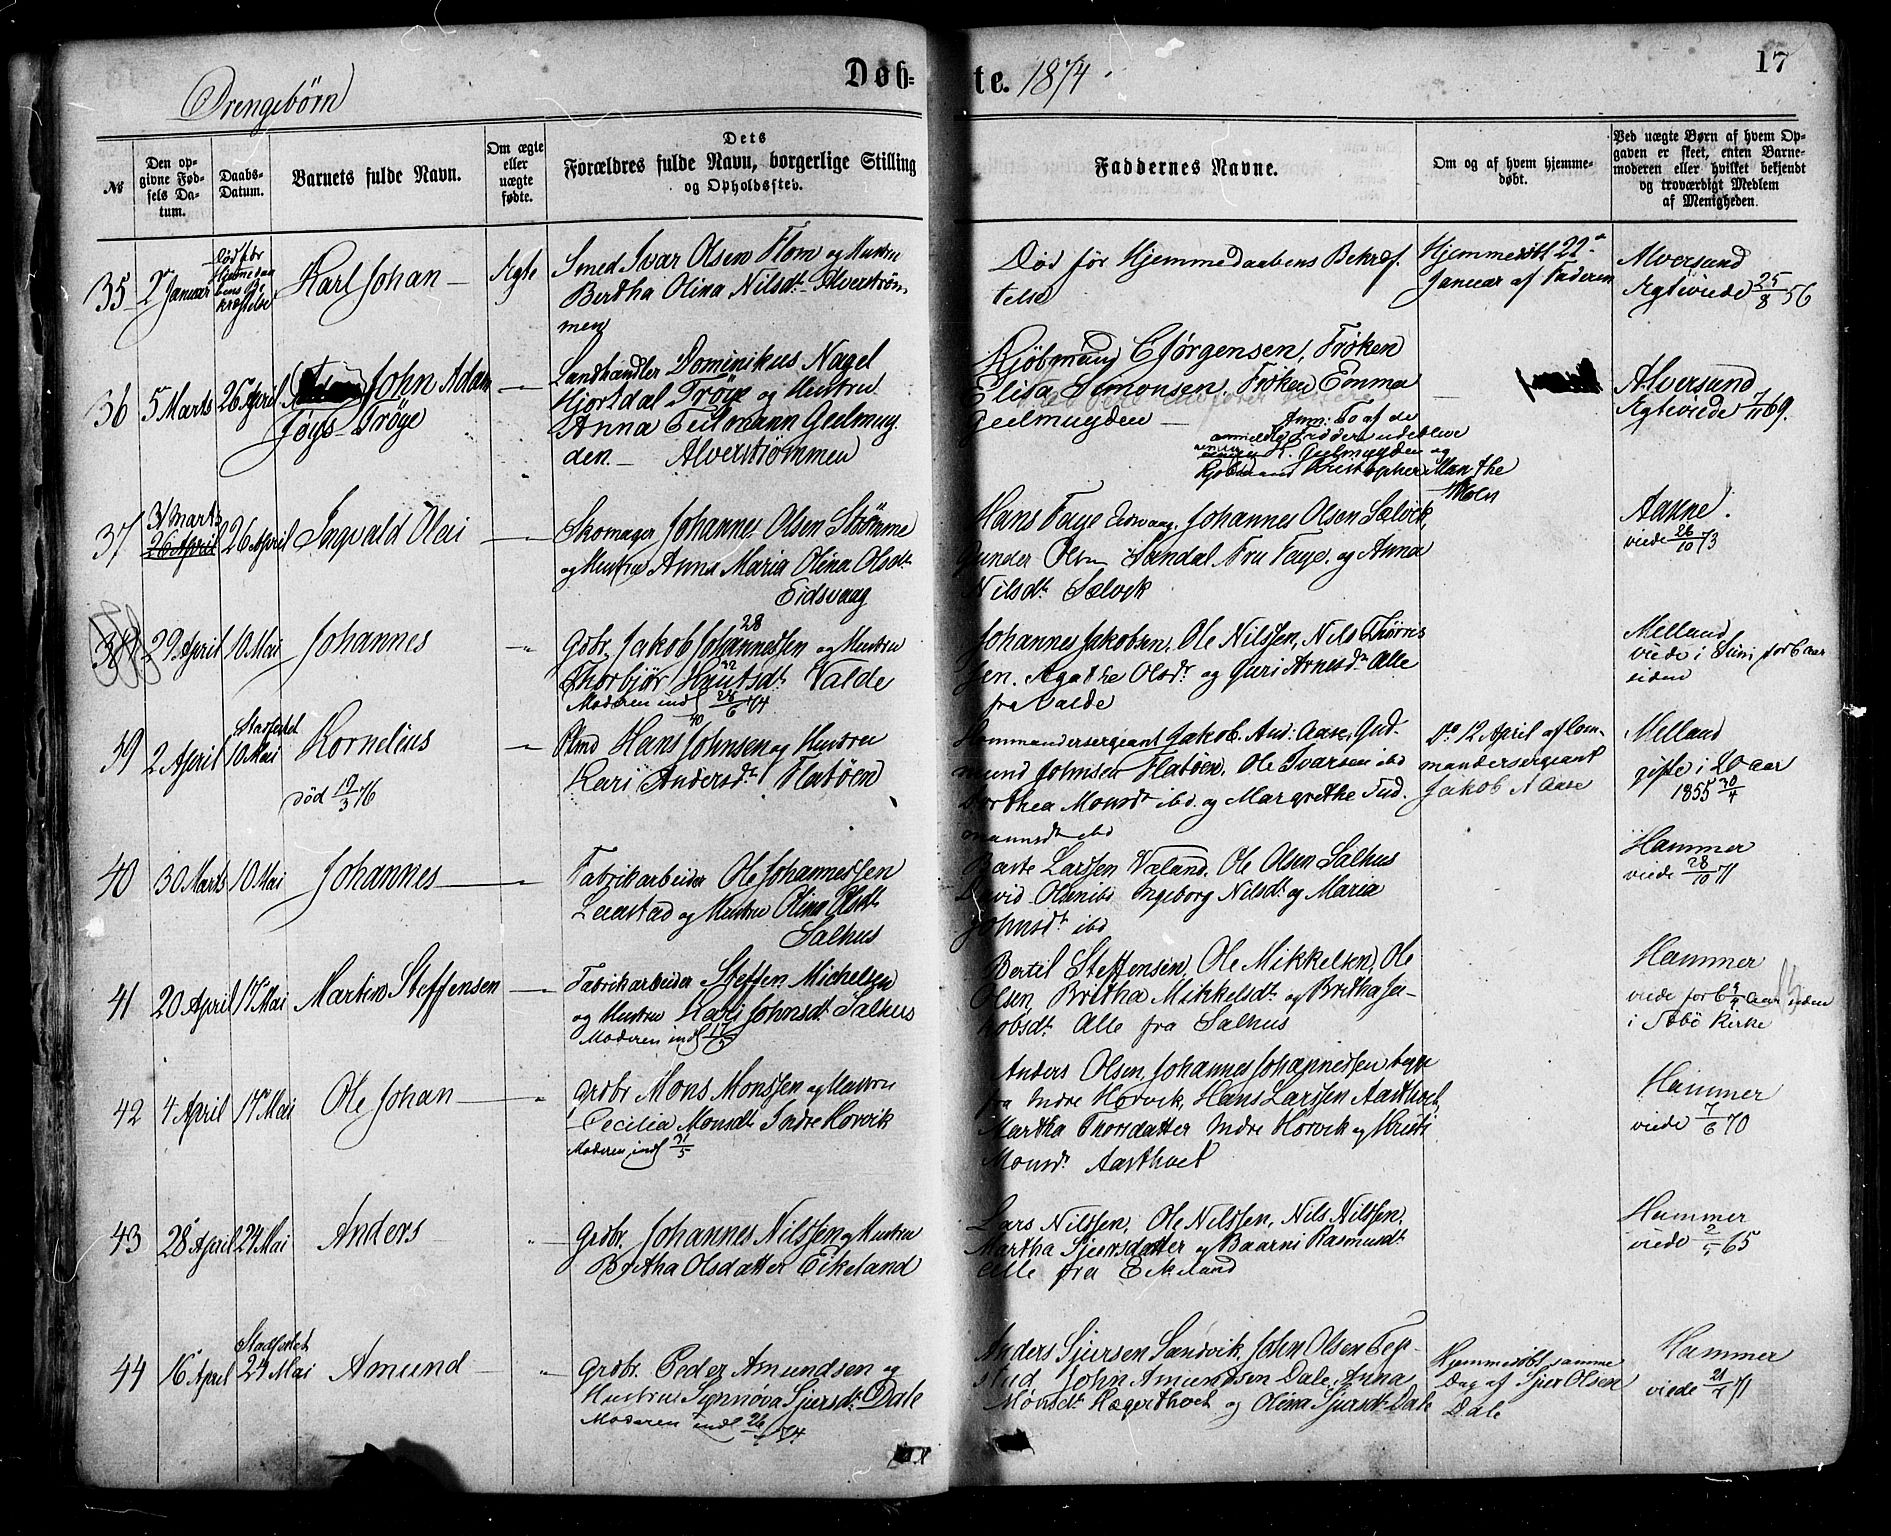 Døbte. 1874
17
Drengebørn
№
Den opgivne Fødsels Datum.
Daabs-Datum.
Barnets fulde Navn.
Om ægte eller uægte fødte.
Dets Forældres fulde Navn, borgerlige Stilling og Opholdssted.
Faddernes Navne.
Om og af hvem hjemmedøbt.
Ved uægte Børn af hvem Opgaven er skeet, enten Barnemoderen eller hvilket bekjendt og troværdigt Medlem af Menigheden.
35
2 Januar
Død før
Hjemmedaabens Bekræftelse
Karl Johan
Ægte
Smed Ivar Olsen Flom og Hustru
Bertha Olina Nilsdt. Alverstrøm-
men
Død før Hjemmedaabens Bekræf-
telse
Hjemmedøbt 22
Januar af Faderen
Alversund
Ægteviede 25/8 56
36
5 Marts
26 April
John Adam
Trøye
Landhandler Dominikus Nagel
Hjortdal Trøye og Hustru
Anna Teilmann Geelmuy-
den. Alverstrømmen
Kjøbmand C Jørgensen, Frøken
Elisa Simonsen, Frøken Emma
Geelmuyden
Anm. To af de
anmeldte Faddere udebleve
Geelmuyden og
Kjøbmand Kristopher Manthe
Alversund
Ægteviede 7/11 69.
37
31 Marts
26 April
26 April
Ingvald Olai
Skomager Johannes Olsen Strømme
og Hustru Anna Maria Olina Olsdt.
Eidsvaag
Hans Faye Eidsvaag, Johannes Olsen Sælvik,
Gunder Olsen Sandal, Fru Faye, og Anna
Nilsdt. Sælvik
Aasne.
viede 26/10 73
38
29 April
10 Mai
Johannes
Gdbr. Jakob Johannessen og Hustru
28
Thorbjør Knutsdt. Valde
Moderen indl 28/6 74
Johannes Jakobsen, Ole Nilssen, Nils Thorris
sen, Agathe Olsdr og Guri Arnesdr Alle
fra Valde
Melland
viede i for 6 aar
siden
39
2 April
Stadfæstet
10 Mai
Kornelius
død 19/3 76
40
Plmd Hans Johnsen og Hustru
Kari Andersdt. Flatøen
Kommandersergeant Jakob And. Aase, Gud-
mund Johnsen Flatøen, Ole Ivarsen ibd
Dorthea Monsdt ibd. og Margrethe Gud-
mannsdt ibd
Do 12 April af Com-
mandersergeant
Jakob A Aase
Melland
gifte i 20 aar
1855 30/4
40
30 Marts
10 Mai
Johannes
Fabrikarbeider Ole Johannessen
Leirstad og Hustru Olina Olsdt
Salhus
Larssen Væland, Ole Olsen Salhus
David Olsen ibd Ingeborg Nilsdt og Maria
Johnsdt ibd
Hammer
viede 28/10 71
41
20 April
17 Mai
Martin Steffensen
Fabrikarbeider Steffen Michelsen
og Hustru Kari Johnsdt. Salhus
Moderen indl
Bertil Steffensen, Ole Mikkelsen, Ole
Olsen, Britha Mikkelsdt og Britha Ja-
kobsdt. Alle fra Salhus
Hammer
viede for aar siden
i Kirke
42
4 April
17 Mai
Ole Johan
Grdbr Mons Monssen og Hustru
Cecilia Monsdt. Indre Horvik
Moderen indl 21/5
Anders Olsen, Johannes Johannessen begge
fra Indre Horvik, Hans Larssen Aasthvet,
Martha Thorsdatter Indre Horvik og Kristi
Monsdt. Aasthvet
Hammer
viede 7/6 70
43
28 April
24 Mai
Anders
Grdbr. Johannes Nilssen og Hustru
Britha Olsdatter Eikeland
Lars Nilssen, Ole Nilssen, Nils Nilssen,
Martha Sjursdatter og Baarni Rasmusdt.
Alle fra Eikeland
Hammer
viede 2/5 65
44
16 April
Stadfæstet
24 Mai
Amund
Grdbr. Peder Amundsen og
Hustru Synnøva Sjursdt. Dale
Moderen indl
Anders Sjursen Sandvik, John Olsen Teig-
stad John Amundsen Dale, Anna
Monsdt. og Olina Sjursdt Dale
Hjemmedøbt samme
Dag af Sjur Olsen
Dale
Hammer
viede 71